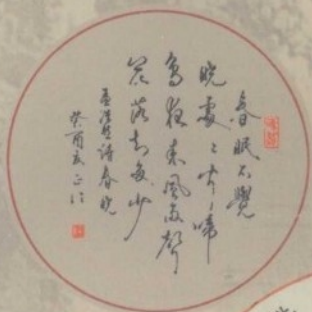 春眠不覺
曉處々聞啼
鳥夜來風雨聲
花落知多少
孟浩然詩春曉
癸酉